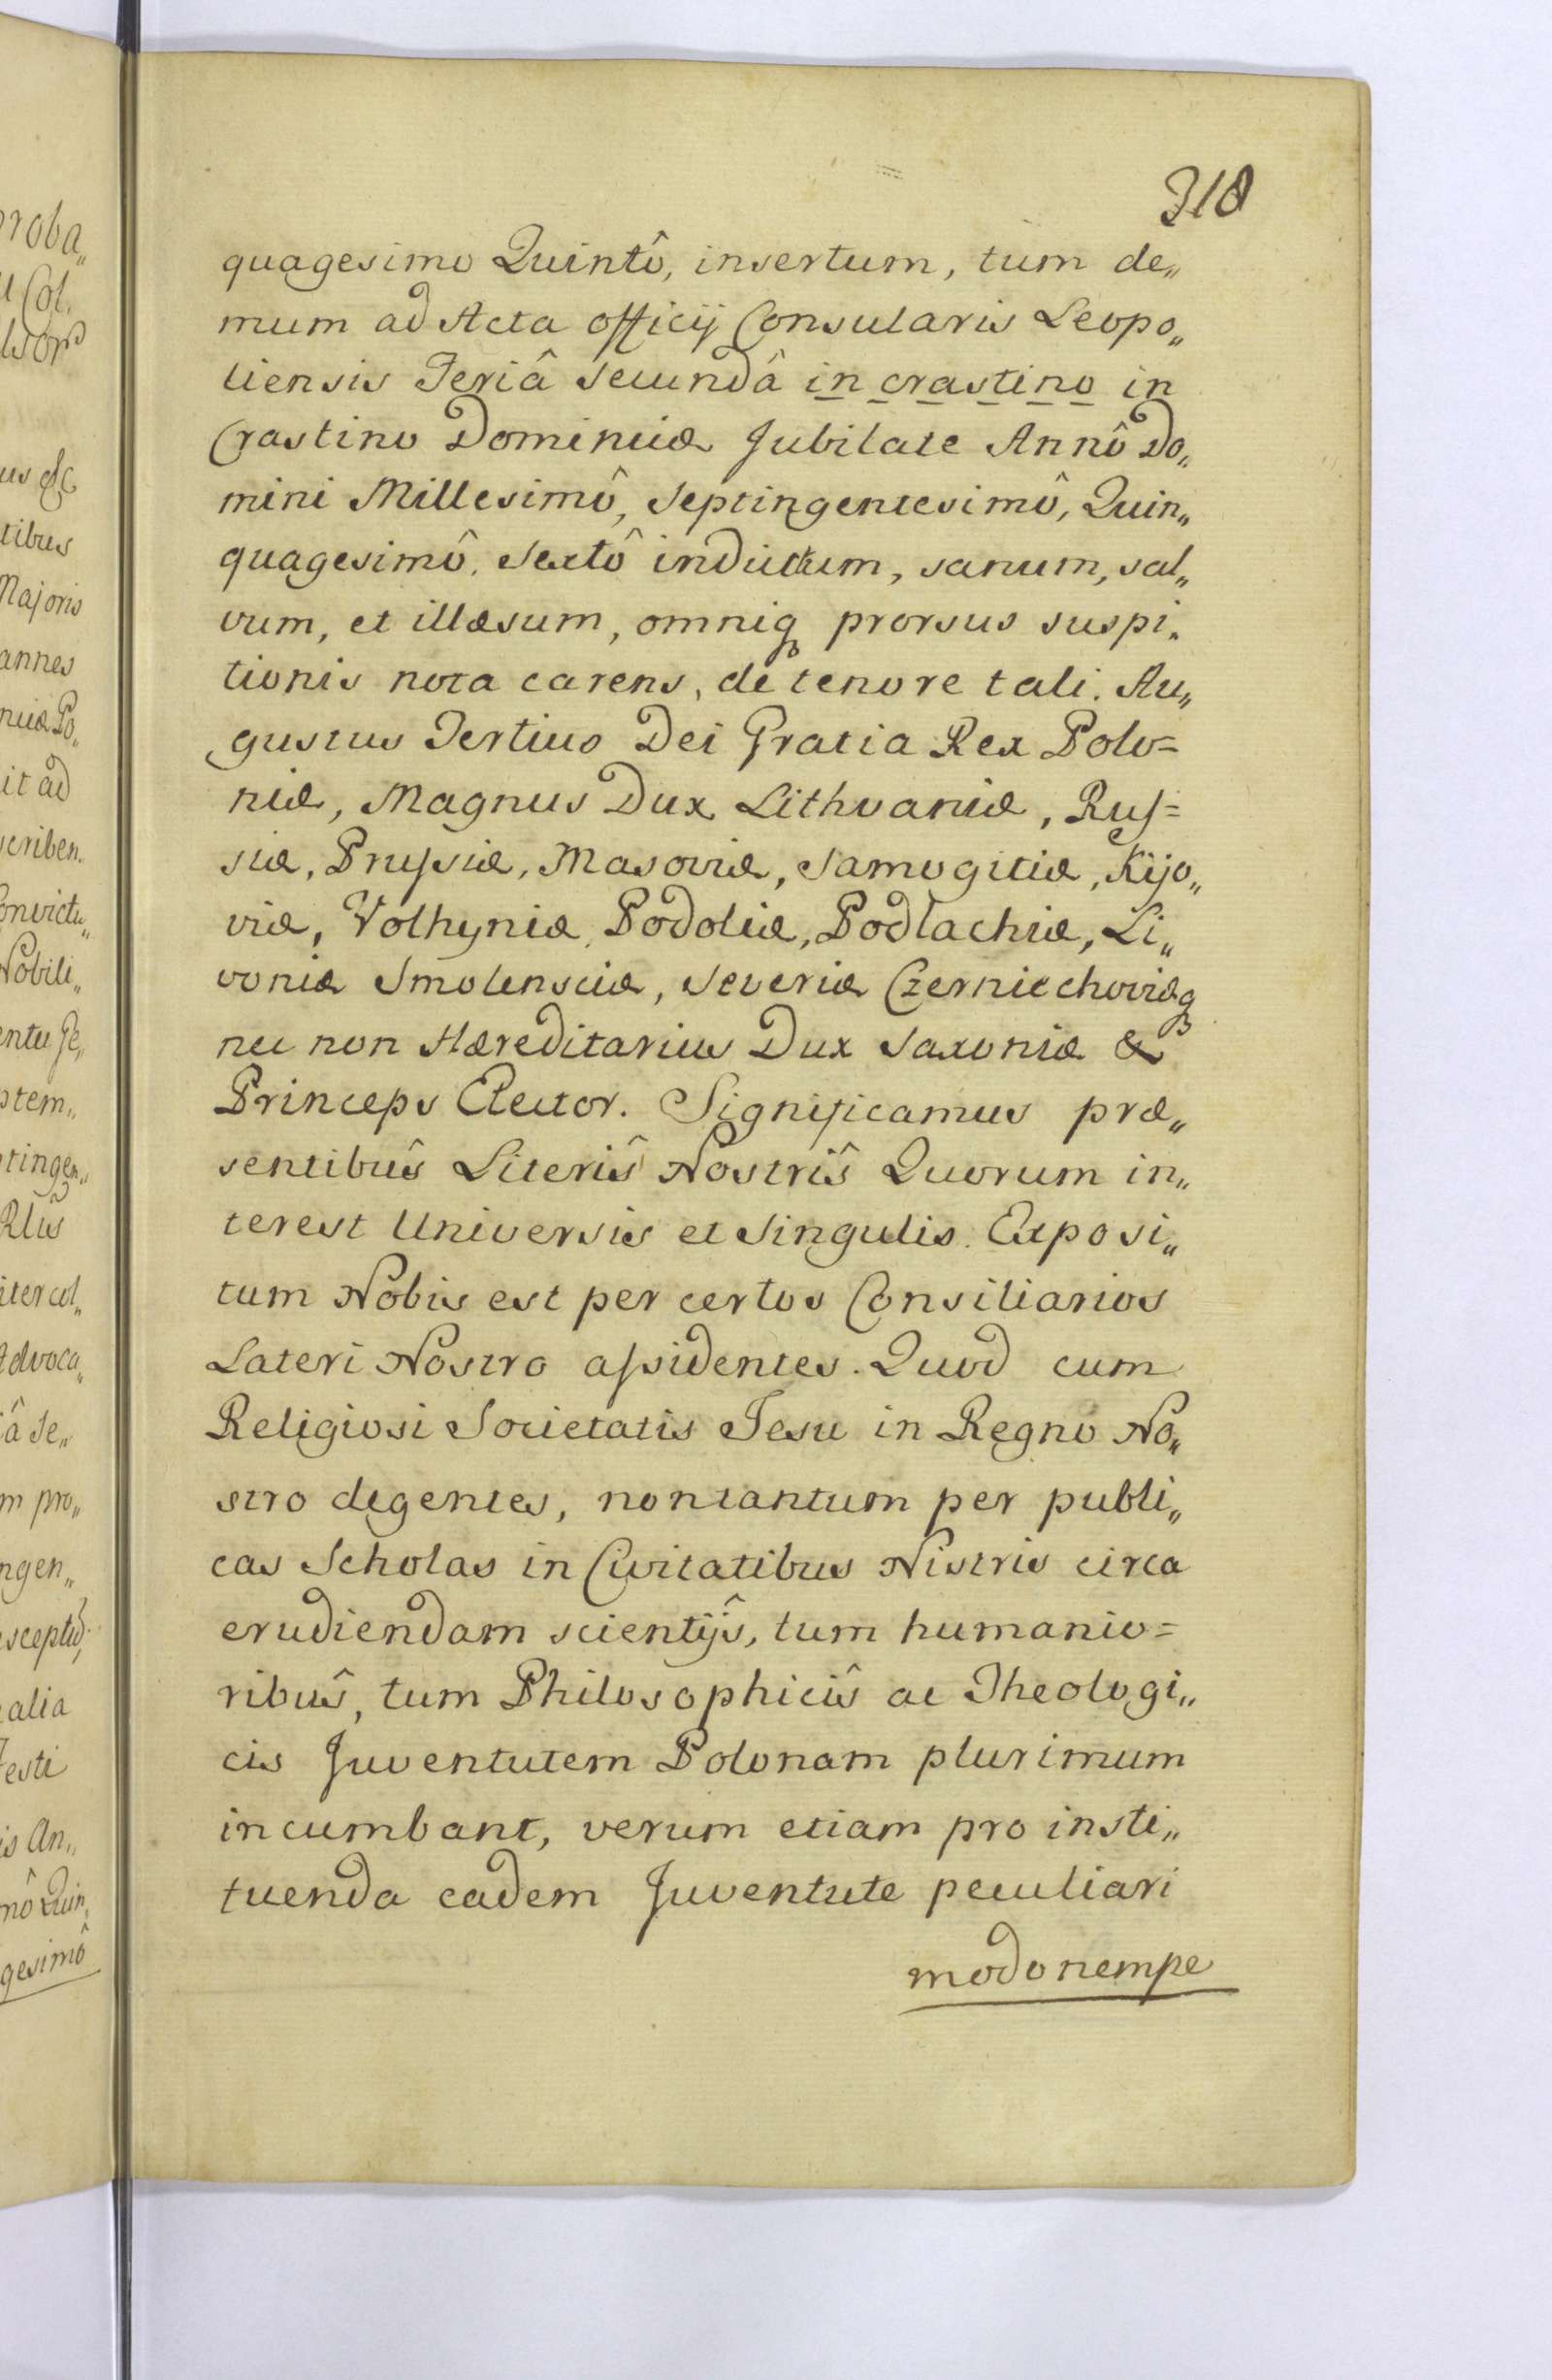 318
quagesimo Quintô, insertum, tum de„
mum ad Acta officij Consularis Leopo„
liensis Feriâ Secundâ in crastino in
Crastino Dominicæ Jubilate Annô Do„
mini Millesimô, Septingentesimô, Quin„
quagesimô. Sextô inductum, sanum, sal„
vum, et illæsum, omniq prorsus suspi„
tionis nota carens, de tenore tali. Au„
gustus Tertius Dei Gratia Rex Polo=
niæ, Magnus Dux Lithvaniæ, Rus=
siæ, Prussiæ, Masoviæ, Samogitiæ, Kijo„
viæ, Volhyniæ, Podoliæ, Podlachiæ, Li„
voniæ Smolensciæ, Severiæ Czerniechoviæq
nec non Hæreditarius Dux Saxoniæ &
Princeps Elector. Significamus præ„
sentibûs Literîs Nostrîs Quorum in„
terest Universis et Singulis. Exposi„
tum Nobis est per certos Consiliarios
Lateri Nostro assidentes. Quod cum
Religiosi Societatis Jesu in Regno No„
stro degentes, nontantum per publi„
cas Scholas in Civitatibus Nistris circa
erudiendam scientijs, tum humanio=
ribûs, tum Philosophicîs ac Theologi„
cis Juventutem Polonam plurimum
incumbant, verum etiam pro insti„
tuenda eadem Juventute peculiari
modo nempe